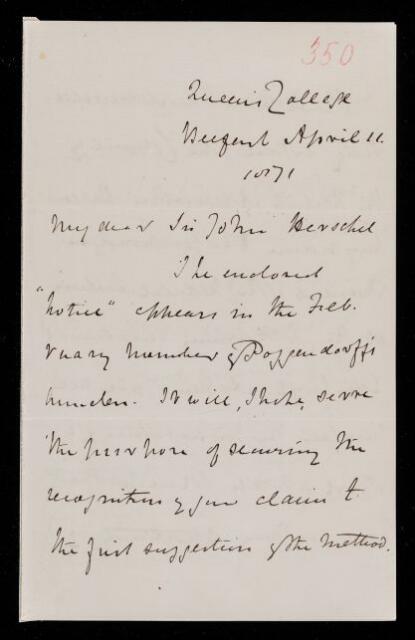 350
Queen's College
Belfast April 11.
1871
My dear Sir John Herschel
The enclosed
"Notice" appears in the Feb-
ruary number of Poggendorff's
Annalen. It will, I hope, serve
the purpose of securing the
recognition of your claim to
the first suggestion of the method.